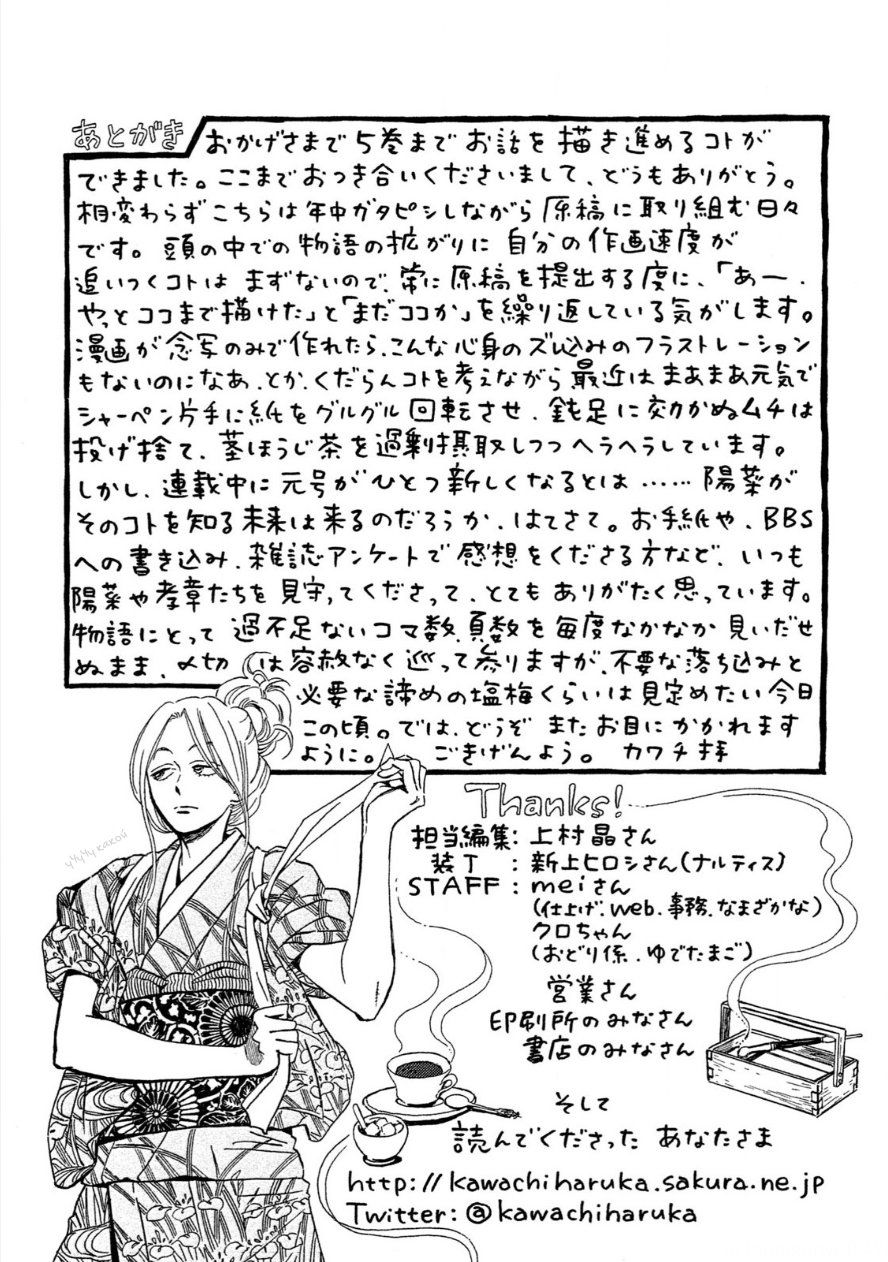 あとがき
おかげさまで5巻までお話を描き進めるコトが
できました。ここまでおつき合いくださいまして、どうもありがとう。
相変わらずこちらは年中ガタピシしながら原稿に取り組む日々
です。頭の中での物語の拡がりに自分の作画速度が
追いつくコトはまずないので、常に原稿を提出する度に、「あー、
やっとココまで描けた」と「まだココか」を繰り返している気がします。
漫画が念写のみで作れたら、こんな心身のズ込みのフラストレーション
もないのになあ、とか、くだらんコトを考えながら最近はまあまあ元気で
シャーペン片手に紙をグルグル回転させ、鈍足に効かぬムチは
投げ捨て、茎ほうじ茶を過剰摂取しつつヘラヘラしています。
しかし、連載中に元号がひとつ新しくなるとは……陽菜が
そのコトを知る未来は来るのだろうか、はてさて。お手紙や、BBS
への書き込み、雑誌アンケートで感想をくださる方など、いつも
陽菜や孝章たちを見守ってくださって、とてもありがたく思っています。
物語にとって過不足ないコマ数、頁数を毎度なかなか見いだせ
ぬまま、〆切は容赦なく巡って参りますが、不要な落ち込みと
必要な諦めの塩梅くらいは見定めたい今日
この頃。では、どうぞまたお目にかかれます
ように。ごきげんよう。カワチ拝
Thanks!
担当編集:上村晶さん
装丁:新上ヒロシさん(ナルティス)
STAFF:meiさん
(仕上げ、web、事務、なまざかな)
クロちゃん
(おどり係、ゆでたまご)
営業さん
印刷所のみなさん
書店のみなさん
そして
読んでくださった あなたさま
http://kawachiharuka.sakura.ne.jp
Twitter:@kawachiharuka